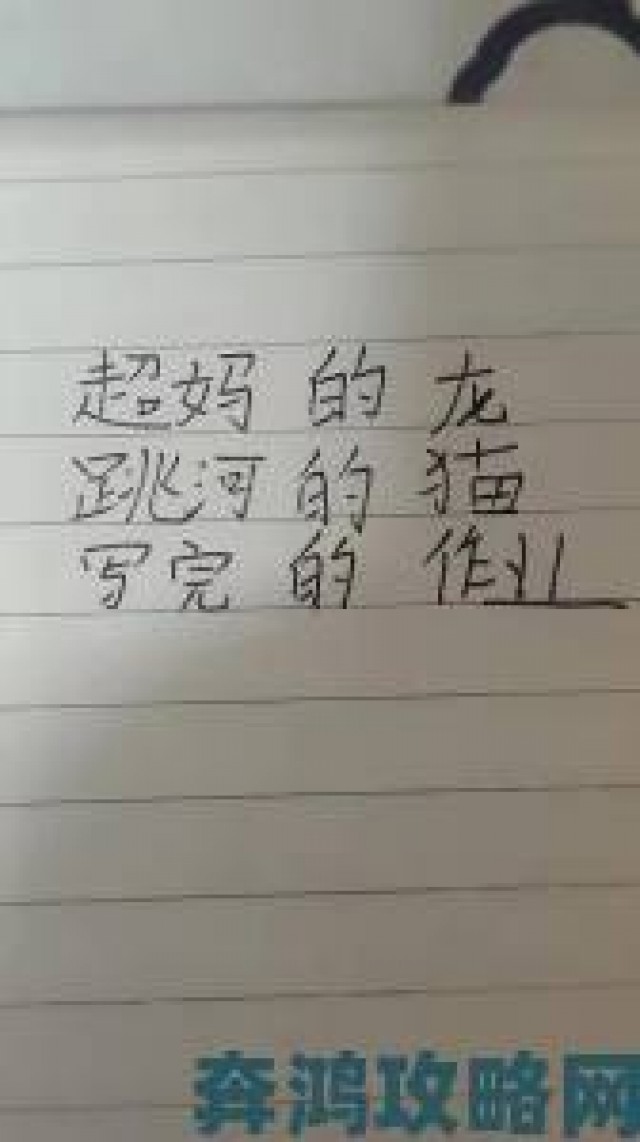 超妈 的 龙
跳河 的 猫
写完 的 作业
奔鸿攻略网